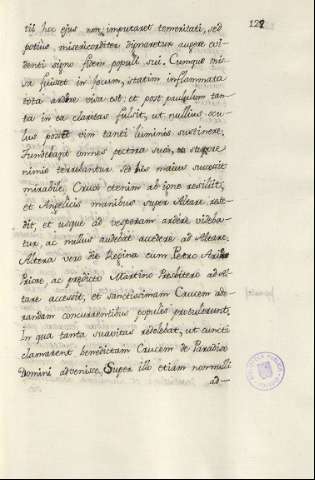 122
tis hoc ejus non imputaret temeritati, sed
potius misericorditer dignaretur augere evi-
denti signo fidem populi sui. Cumque mi-
sa fuisset in focum, statim inflammata
tota ardere visa est, et post paululum tan-
ta in ea claritas fulsit, ut nullus ocu-
lus posset vim tanti luminis sustinere.
Fundebant omnes pectora sua, et stupore
nimio terrebantur. Sed his maius successit
mirabile. Crux etenim ab igne resiliit,
et Angelicis manibus super Altare rese-
dit, et usque ad vesperam ardere videba-
tur, ac nullus audebat accedere ad Altare.
Altera vero die Regina cum Petro
Priore, ac predicto Martino Presbitero ad al-
tare accessit, et sanctissimam Crucem ado-
randam concurrentibus populis protulerunt,
In qua tanta suavitas redolebat, ut cuncti
clamarent benedictam Crucem de Paradiso
Domini advenisse. Super illo etiam nonnulli
ad-